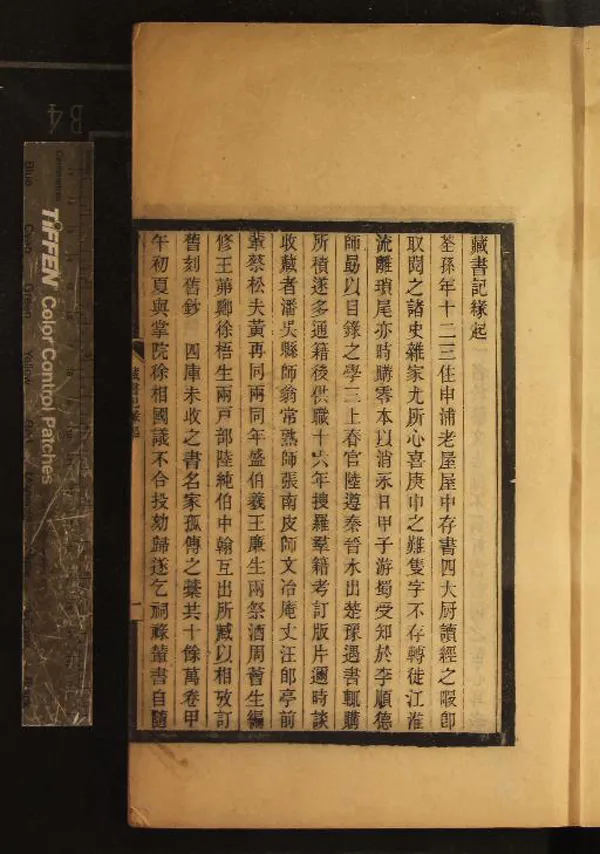 藏書記緣起
荃孫年十二三住申浦老屋屋中存書四大厨讀經之暇卽
取閱之諸史雜家尤所心喜庚申之難隻字不存轉徙江淮
流離瑣尾亦時購零本以消永日甲子游蜀受知於李順德
師勗以目錄之學三上春官陸遵秦晉水出楚豫遇書輒購
所積遂多通籍後供職十六年搜羅羣籍考訂版片邇時談
收藏者潘吳縣師翁常熟師張南皮師文冶庵丈汪郋亭前
輩蔡松夫黃再同兩同年盛伯羲王廉生兩祭酒周薈生編
修王茀卿徐梧生兩戸部陸純伯中翰互出所藏以相攷訂
舊刻舊鈔 四庫未收之書名家孤傳之藁共十餘萬卷甲
午初夏與掌院徐相國議不合投劾歸遂乞祠祿輦書自隨
藏書記緣起
一
B4
TIFFEN Color Control Patches
Blue
Cyan
Green
Yellow
Red